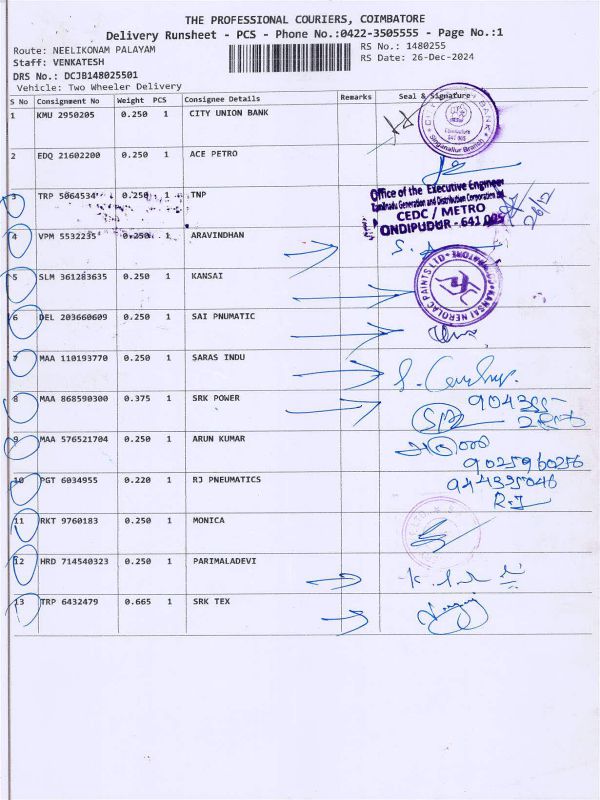 THE PROFESSIONAL COURIERS, COIMBATORE
Delivery Runsheet - PCS - Phone No.:0422-3505555 - Page No.:1
Route: NEELIKONAM PALAYAM
RS No.: 1480255
Staff: VENKATESH
RS Date: 26-Dec-2024
DRS No.: DCJB148025501
Vehicle: Two Wheeler Delivery
S No Consignment No Weight PCS Consignee Details Remarks Seal & Signature
1 KMU 2950205 0.250 1 CITY UNION BANK
Singanallur Branch
2 EDQ 21602200 0.250 1 ACE PETRO
3 TRP 5064534 0.250 1 TNP
Office of the Executive Engineer
Tamilnadu Generation and Distribution Corporation Ltd
CEDC / METRO
ONDIPUDUR - 641 005
26/12
4 VPM 5532235 0.250 1 ARAVINDHAN
5 SLM 361283635 0.250 1 KANSAI
KANSAI NEROLAC PAINTS LTD
6 DEL 203660609 0.250 1 SAI PNUMATIC
7 MAA 110193770 0.250 1 SARAS INDU
8 MAA 868590300 0.375 1 SRK POWER
9 MAA 576521704 0.250 1 ARUN KUMAR
9025960256
10 PGT 6034955 0.220 1 RJ PNEUMATICS
944395046
R.J
11 RKT 9760183 0.250 1 MONICA
12 HRD 714540323 0.250 1 PARIMALADEVI
13 TRP 6432479 0.665 1 SRK TEX